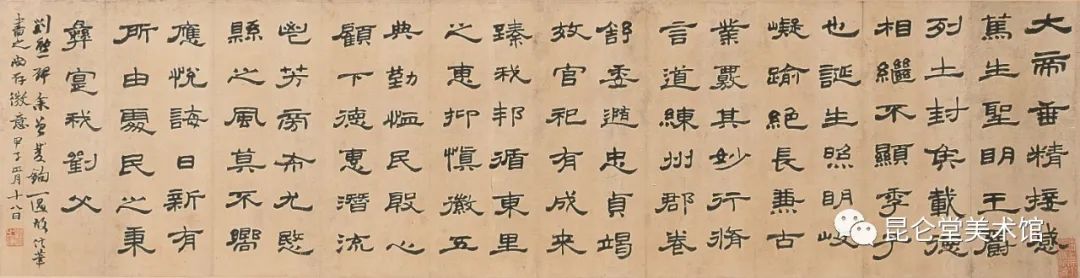 大帝垂精接感
篤生聖明王
列土封侯載德
相繼不顯季子
也誕生照明岐
嶷踰絕長兼古
業覈其妙行脩
言道練州郡卷
舒委隨忠貞竭
效官祀有成來
臻我邦循東里
之惠抑慎徽五
典勤恤民殷心
顧下德惠潛流
鬯芳旁布尤愍
縣之風莫不嚮
應悅誨日新有
所由處民之秉
彝寔我劉父
劉熊碑余曾雙鉤一過筆
畫之尚存微意甲子月十八日
昆仑堂美术馆